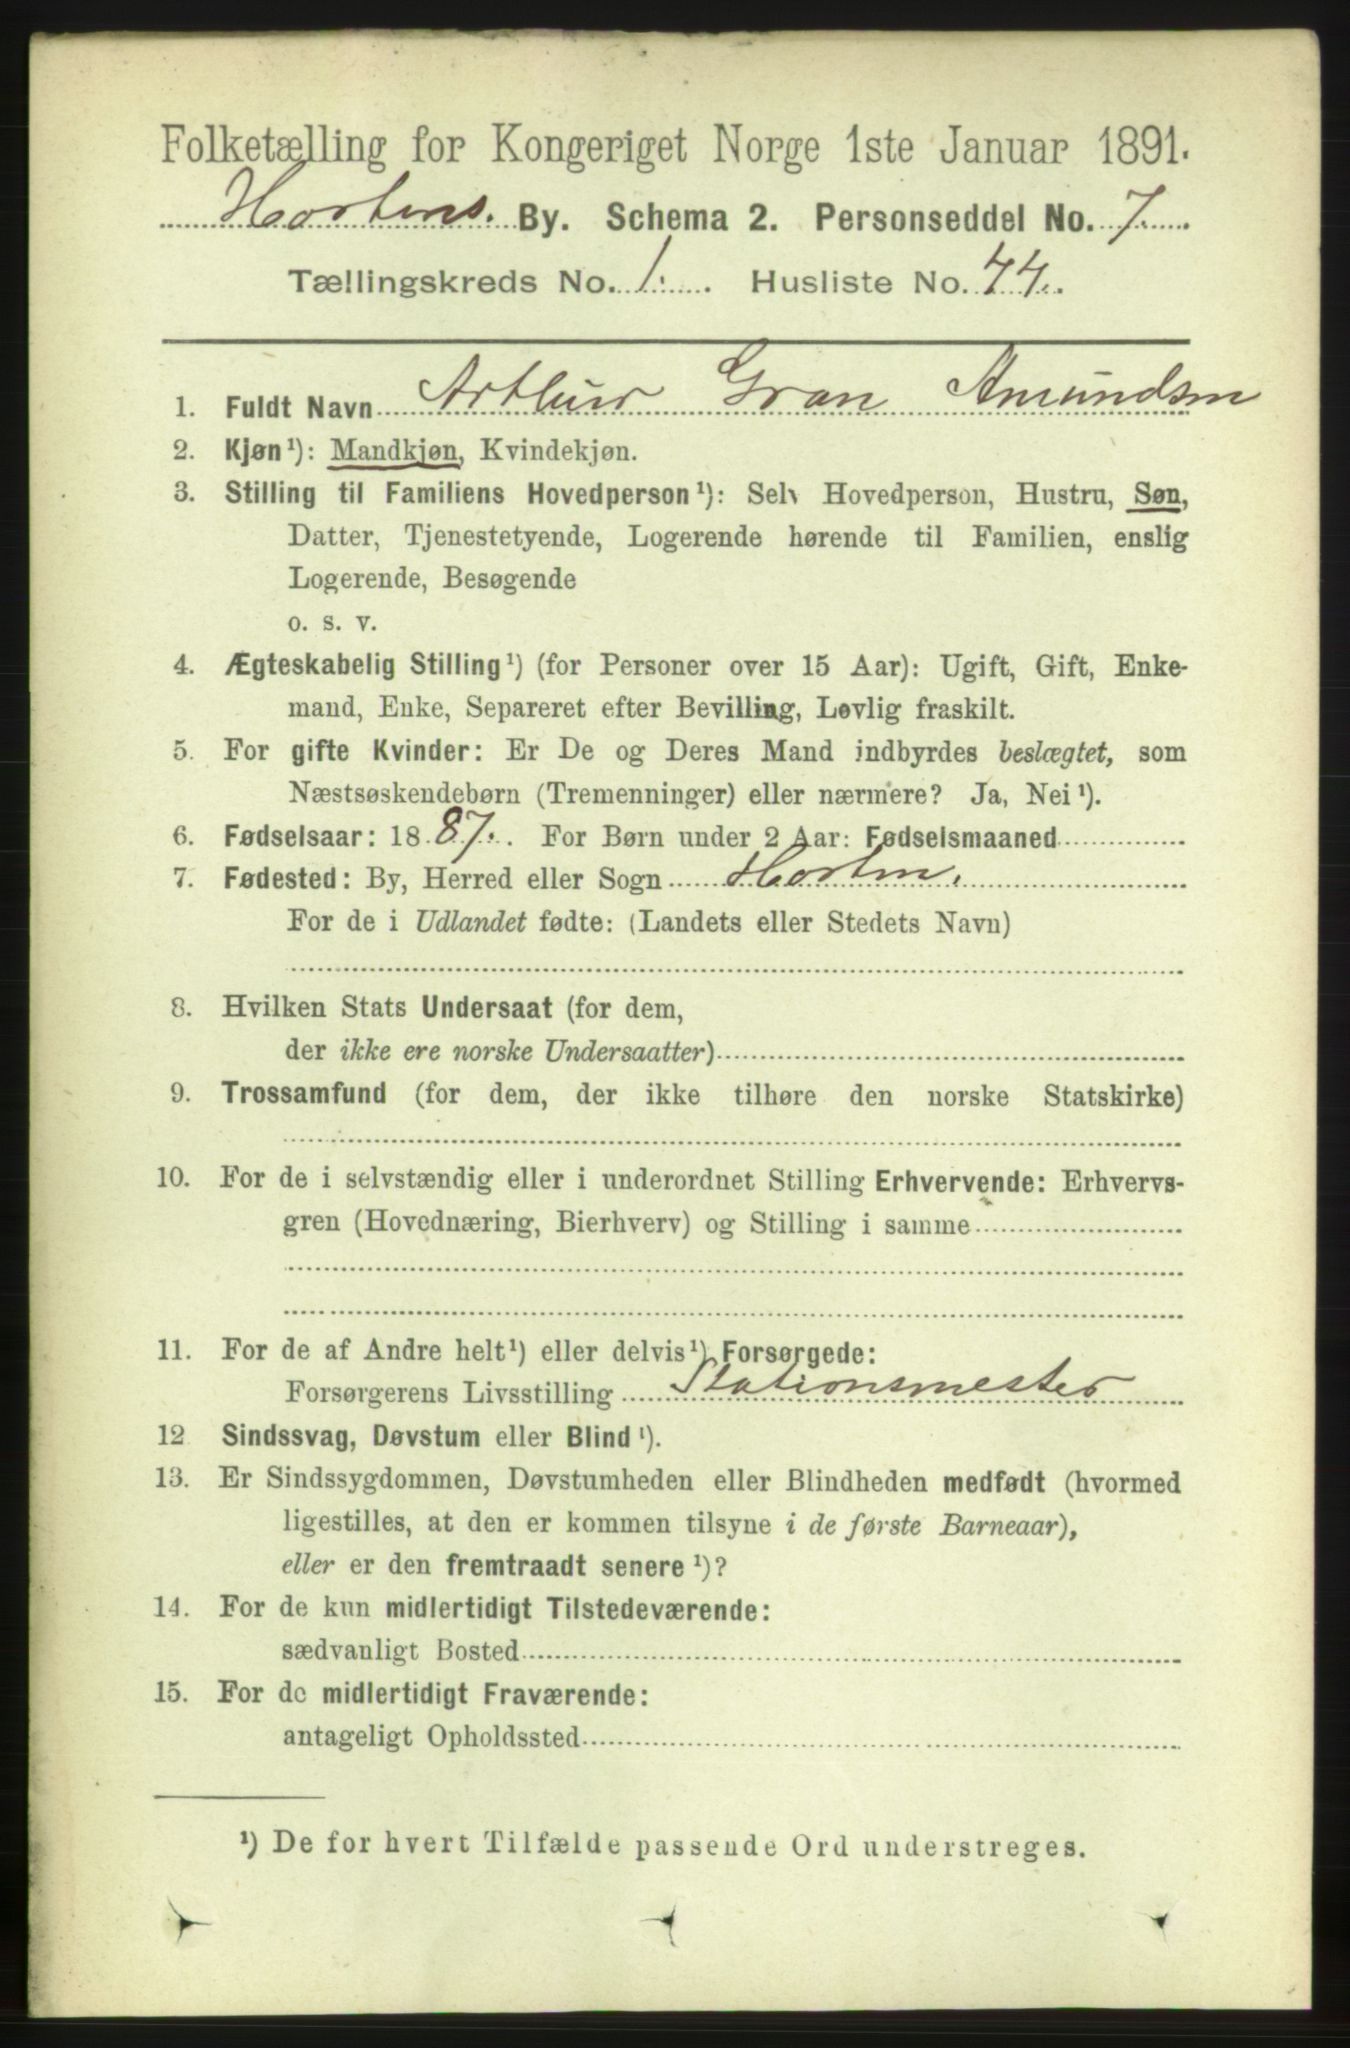 Folketælling for Kongeriget Norge 1ste Januar 1891.
Hortens. By. Schema 2. Personseddel No. 7.
Tællingskreds No. 1. Husliste No. 44.
1. Fuldt Navn Arthur Gran Amundsen
2. Kjøn¹): Mandkjøn, Kvindekjøn.
3. Stilling til Familiens Hovedperson¹): Selv Hovedperson, Hustru, Søn,
Datter, Tjenestetyende, Logerende hørende til Familien, enslig
Logerende, Besøgende
o. s. v.
4. Ægteskabelig Stilling¹) (for Personer over 15 Aar): Ugift, Gift, Enke-
mand, Enke, Separeret efter Bevilling, Løvlig fraskilt.
5. For gifte Kvinder: Er De og Deres Mand indbyrdes beslægtet, som
Næstsøskendebørn (Tremenninger) eller nærmere? Ja, Nei¹).
6. Fødselsaar: 1887. For Børn under 2 Aar: Fødselsmaaned
7. Fødested: By, Herred eller Sogn Horten.
For de i Udlandet fødte: (Landets eller Stedets Navn)
8. Hvilken Stats Undersaat (for dem,
der ikke ere norske Undersaatter)
9. Trossamfund (for dem, der ikke tilhøre den norske Statskirke)
10. For de i selvstændig eller i underordnet Stilling Erhvervende: Erhvervs-
gren (Hovednæring, Bierhverv) og Stilling i samme
11. For de af Andre helt¹) eller delvis¹) Forsørgede:
Forsørgerens Livsstilling Stationsmester
12 Sindssvag, Døvstum eller Blind¹).
13. Er Sindssygdommen, Døvstumheden eller Blindheden medfødt (hvormed
ligestilles, at den er kommen tilsyne i de første Barneaar),
eller er den fremtraadt senere¹)?
14. For de kun midlertidigt Tilstedeværende:
sædvanligt Bosted
15. For de midlertidigt Fraværende:
antageligt Opholdssted
¹) De for hvert Tilfælde passende Ord understreges.